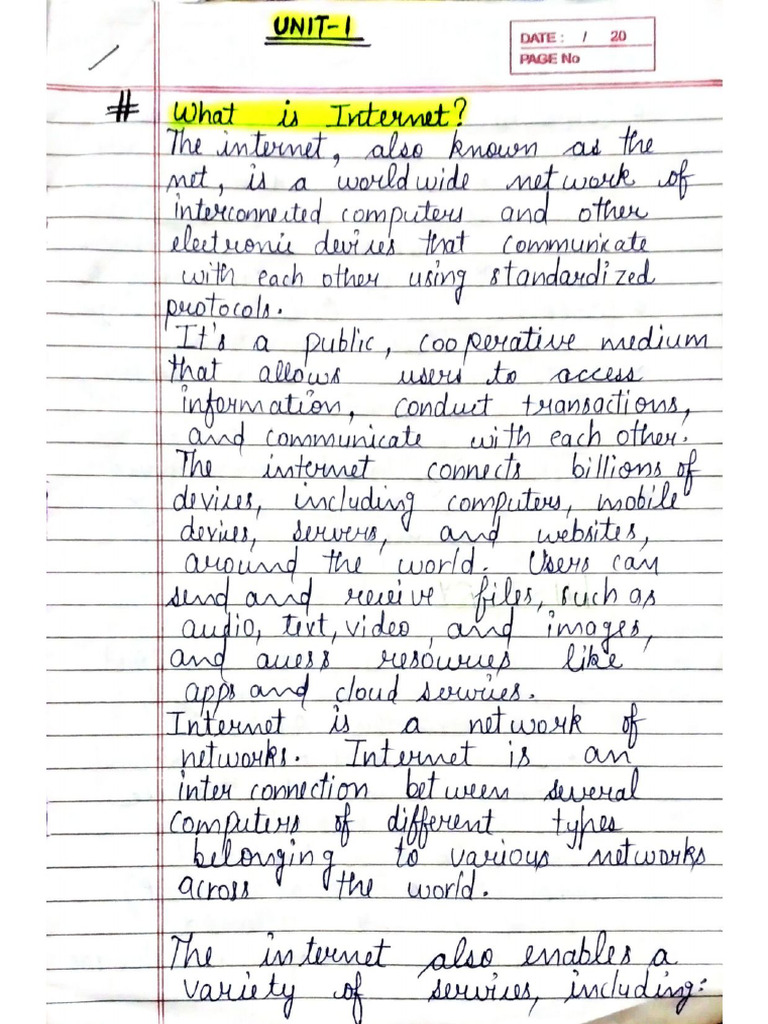 UNIT-1
DATE: / 20
PAGE No
# What is Internet?
The internet, also known as the
net, is a worldwide network of
interconnected computers and other
electronic devices that communicate
with each other using standardized
protocols.
It's a public, cooperative medium
that allows users to access
information, conduct transactions,
and communicate with each other.
The internet connects billions of
devices, including computers, mobile
devices, servers, and websites,
around the world. Users can
send and receive files, such as
audio, text, video, and images,
and access resources like
apps and cloud services.
Internet is a network of
networks. Internet is an
inter connection between several
computers of different types
belonging to various networks
across the world.
The internet also enables a
variety of services, including: